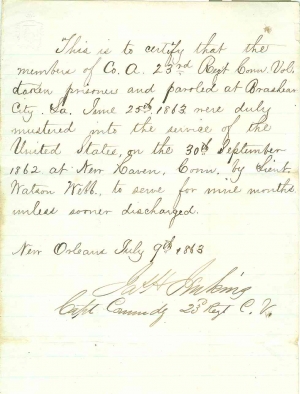 This is to certify that the
members of Co. A. 23rd Regt Conn. Vols.
taken prisoners and paroled at Brashear
City. La. June 25th 1863 were duly
mustered into the service of the
United States, on the 30th September
1862 at New Haven, Conn. by Lieut.
Watson Webb. to serve for nine months
unless sooner discharged.
New Orleans July 9th 1863
Jas H Jenkins
Capt Commdg 23d Regt C. V.